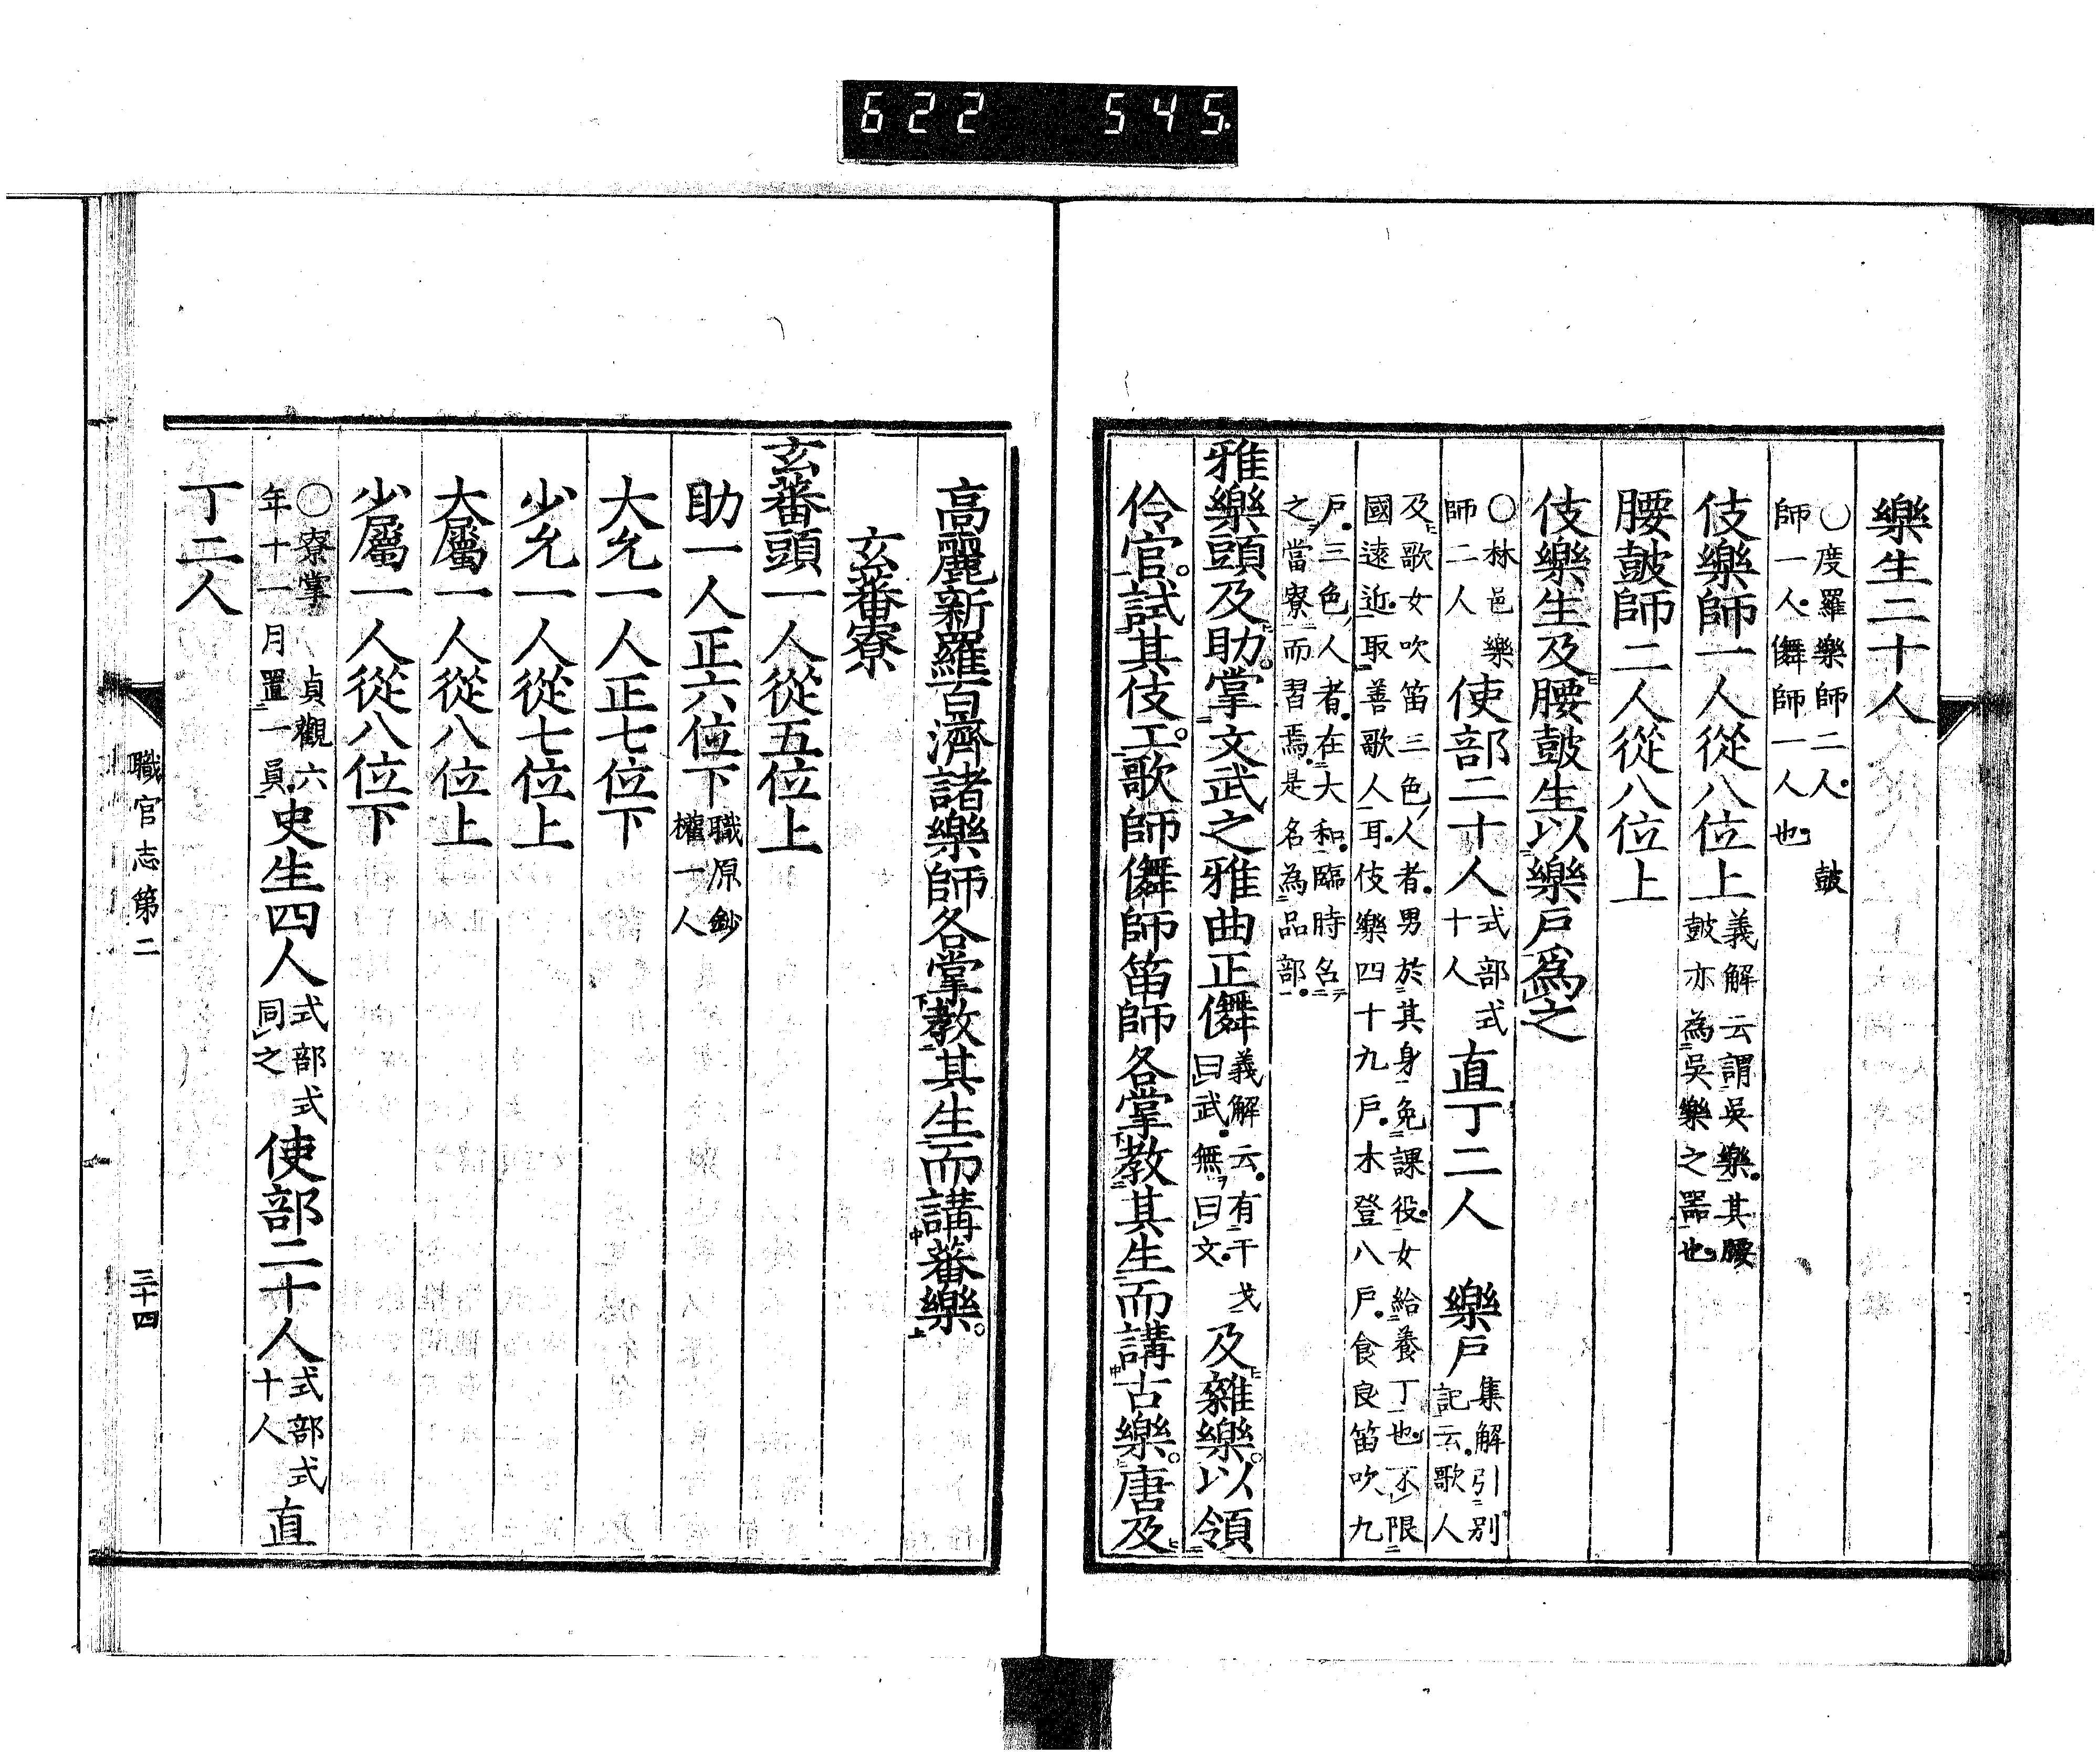 622 545.
樂生二十人
○度羅樂師二人。鼓
師一人。儛師一人也。
伎樂師一人從八位上
義解云謂吳樂。其腰
鼓亦為吳樂之器也。
腰鼓師二人從八位上
伎樂生及腰鼓生以樂戶爲之
○林邑樂
師二人
使部二十人
式部式
十人
直丁二人 樂戶
集解引別
記云。歌人
及歌女吹笛三色人者。男於其身免課役。女給養丁也。不限
國遠近。取善歌人耳。伎樂四十九戶。木登八戶。食良笛吹九
戶。三色人者。在大和。臨時名
之當寮而習焉。是名為品部。
雅樂頭及助。掌文武之雅曲正儛
義解云。有干戈
曰武。無曰文。
及雜樂。以領
伶官。試其伎工。歌師儛師笛師各掌教其生而講古樂。唐及
高麗新羅百濟諸樂師各掌教其生而講蕃樂。
玄蕃寮
玄蕃頭一人從五位上
助一人正六位下
職原鈔
權一人
大允一人正七位下
少允一人從七位上
大屬一人從八位上
少屬一人從八位下
○寮掌 貞觀六
年十一月置一員。
史生四人
式部式
同之
使部二十人
式部式
十人
直
丁二人
職官志第二
三十四